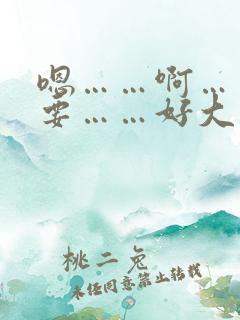 嗯……啊…
要……好大
桃二兔
未经同意禁止转载